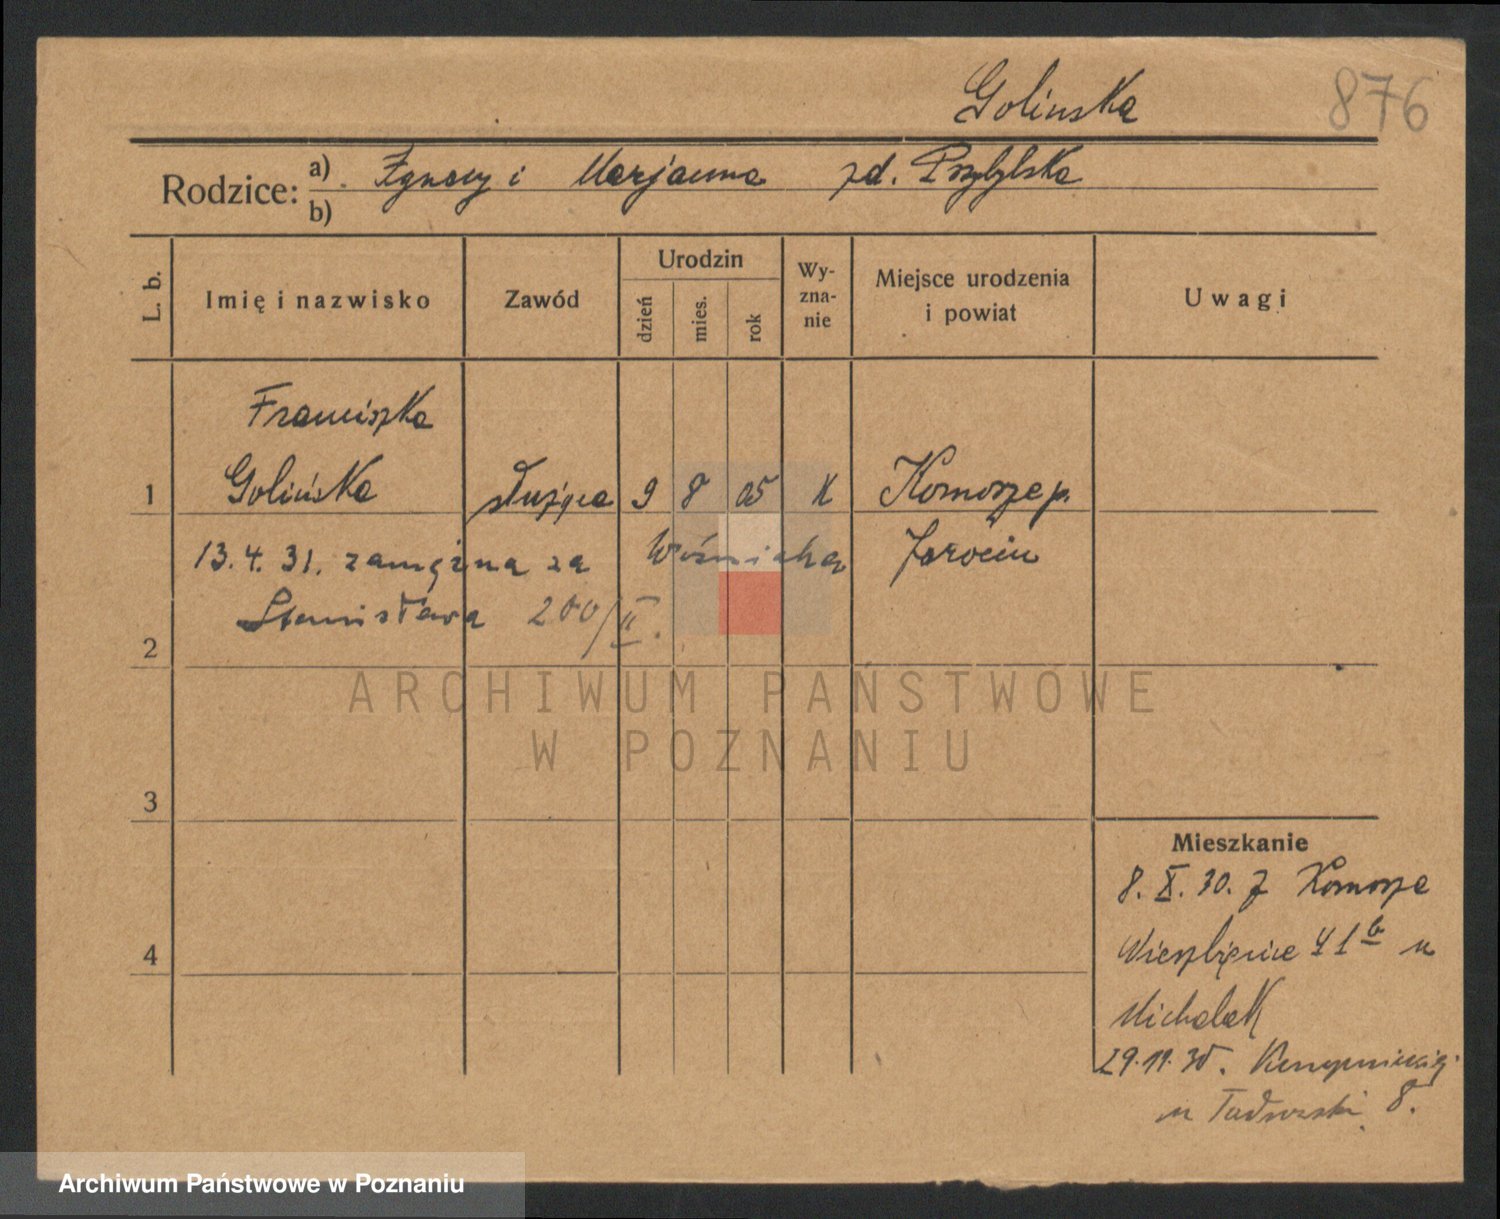 Golinska
876
Rodzice: a) Ignacy i Marjanna zd. Przybylska
b)
L. b.
Imię i nazwisko
Zawód
Urodzin
dzień
mies.
rok
Wy-
zna-
nie
Miejsce urodzenia
i powiat
Uwagi
Franciszka
1 Golińska służąca 9 8 05 K Komorze p.
13.4.31. zamężna za Woźniaka Jarocin
Stanisława 200/II.
2
ARCHIWUM PAŃSTWOWE
W POZNANIU
3
Mieszkanie
8. X. 30. z Komorze
4
Wierzbięcice 41 b u
Michalak
29.11.30. 
u 8.
Archiwum Państwowe w Poznaniu